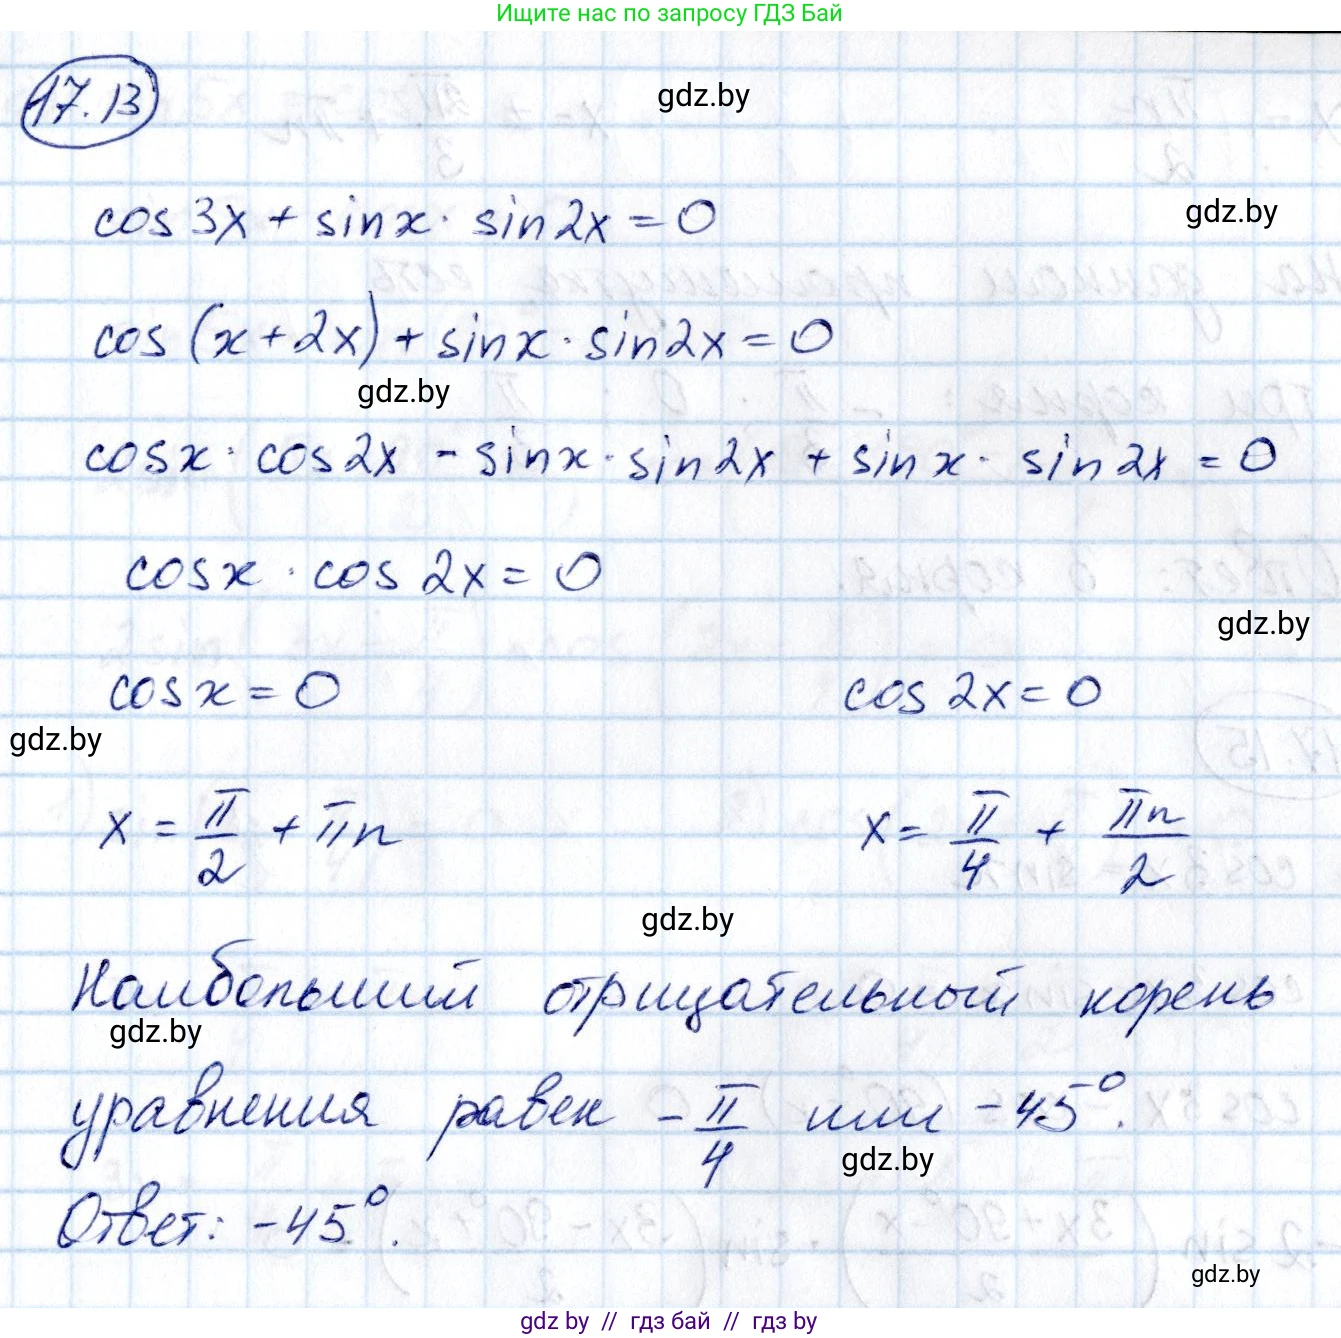 Ищите нас по запросу ГДЗ Бай
17.13
gdz.by
cos 3x + sin x · sin 2x = 0
gdz.by
cos (x + 2x) + sin x · sin 2x = 0
gdz.by
cos x · cos 2x - sin x · sin 2x + sin x · sin 2x = 0
cos x · cos 2x = 0
gdz.by
cos x = 0 cos 2x = 0
gdz.by
x = π/2 + πn x = π/4 + πn/2
gdz.by
Наибольший отрицательный корень
gdz.by
уравнения равен - π/4 или -45°.
gdz.by
Ответ: -45°.
gdz.by
gdz by // гдз бай // гдз by